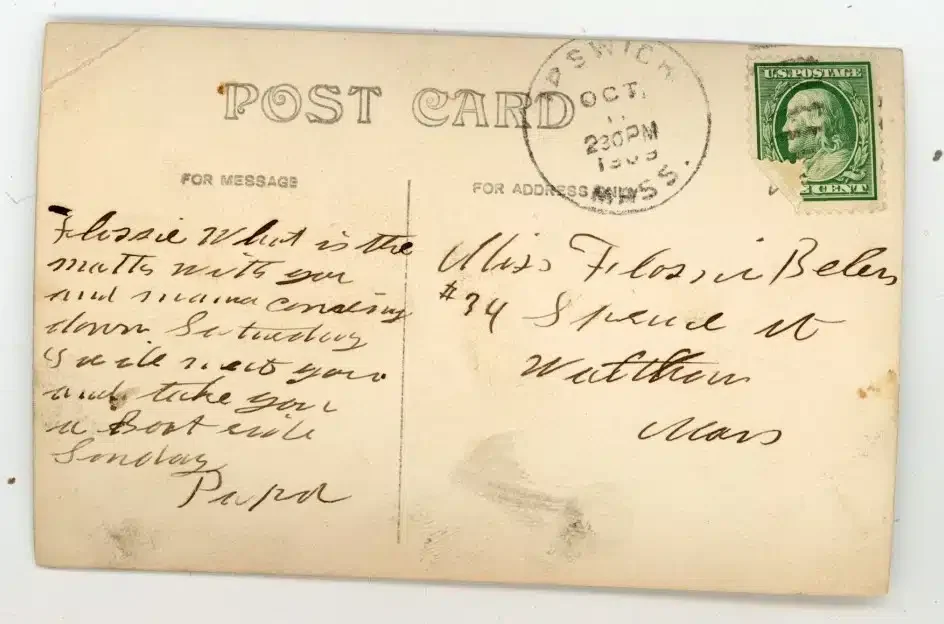 POST CARD
FOR MESSAGE
FOR ADDRESS ONLY
IPSWICH
OCT.
11
230PM
1909
MASS.
U.S. POSTAGE
CENT
Flossie What is the
matter with you
and mama comeing
down Saturday
I will meet you
and take you
a Boat ride
Sonday
Papa
Miss Flossie
#34 St
Waltham
Mass